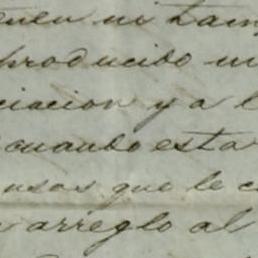 enen ni tam
producido n
ciacion y a l
cuando esta
usos que le c
arreglo al